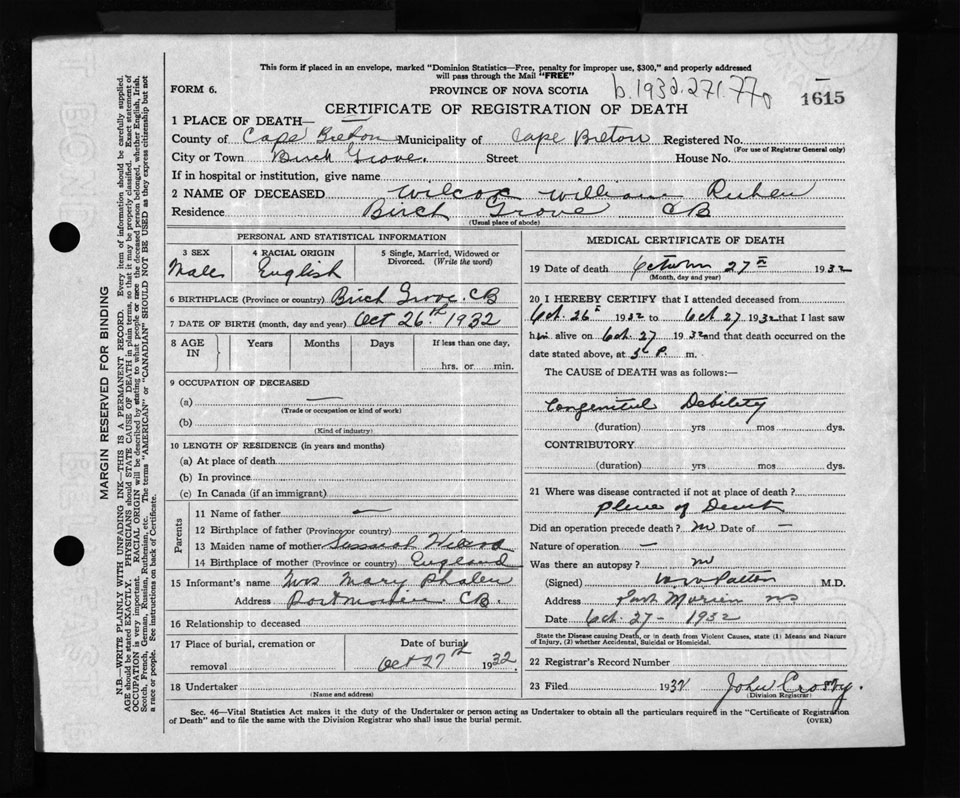 This form if placed in an envelope, marked "Dominion Statistics—Free, penalty for improper use, $300," and properly addressed
will pass through the Mail "FREE"
FORM 6.
PROVINCE OF NOVA SCOTIA
b.1932.271.770
1615
CERTIFICATE OF REGISTRATION OF DEATH
1 PLACE OF DEATH—
County of Cape Breton Municipality of Cape Breton Registered No.
(For use of Registrar General only)
City or Town Birch Grove. Street House No.
If in hospital or institution, give name
2 NAME OF DECEASED Wilcox William Ruben
Residence Birch Grove CB
(Usual place of abode)
PERSONAL AND STATISTICAL INFORMATION
3 SEX
Male
4 RACIAL ORIGIN
English
5 Single, Married, Widowed or
Divorced. (Write the word)
6 BIRTHPLACE (Province or country) Birch Grove. CB
7 DATE OF BIRTH (month, day and year) Oct 26th 1932
8 AGE
IN
Years Months Days If less than one day,
hrs. or min.
9 OCCUPATION OF DECEASED
(a) —
(Trade or occupation or kind of work)
(b)
(Kind of industry)
10 LENGTH OF RESIDENCE (in years and months)
(a) At place of death
(b) In province
(c) In Canada (if an immigrant)
Parents
11 Name of father —
12 Birthplace of father (Province or country)
13 Maiden name of mother
14 Birthplace of mother (Province or country) England
15 Informant's name Mrs Mary Phalen
Address Portmorien. CB.
16 Relationship to deceased
17 Place of burial, cremation or
removal
Date of burial
Oct 27th 1932
18 Undertaker
(Name and address)
MEDICAL CERTIFICATE OF DEATH
19 Date of death 27 1932
(Month, day and year)
20 I HEREBY CERTIFY that I attended deceased from
Oct. 26 1932 to Oct. 27 1932 that I last saw
him alive on Oct. 27 1932 and that death occurred on the
date stated above, at P. m.
The CAUSE of DEATH was as follows:—
Congenital Debility
(duration) yrs mos dys.
CONTRIBUTORY
(duration) yrs mos dys.
21 Where was disease contracted if not at place of death?
place of Death
Did an operation precede death? no Date of —
Nature of operation —
Was there an autopsy? no
(Signed) Patton M.D.
Address Port Morien NS
Date Oct. 27 - 1932
State the Disease causing Death, or in death from Violent Causes, state (1) Means and Nature
of Injury, (2) whether Accidental, Suicidal or Homicidal.
22 Registrar's Record Number
23 Filed 1932 John Crosby.
(Division Registrar)
Sec. 46—Vital Statistics Act makes it the duty of the Undertaker or person acting as Undertaker to obtain all the particulars required in the "Certificate of Registration
of Death" and to file the same with the Division Registrar who shall issue the burial permit.
(OVER)
MARGIN RESERVED FOR BINDING
N.B.—WRITE PLAINLY WITH UNFADING INK—THIS IS A PERMANENT RECORD. Every item of information should be carefully supplied.
AGE should be stated EXACTLY. PHYSICIANS should STATE CAUSE OF DEATH in plain terms, so that it may be properly classified. Exact statement of
OCCUPATION is very important. RACIAL ORIGIN will be described by stating to what people or race the deceased person belonged, whether English, Irish,
Scotch, French, German, Russian, Ruthenian, etc. The terms "AMERICAN" or "CANADIAN" SHOULD NOT BE USED as they express citizenship but not
a race or people. See instructions on back of Certificate.